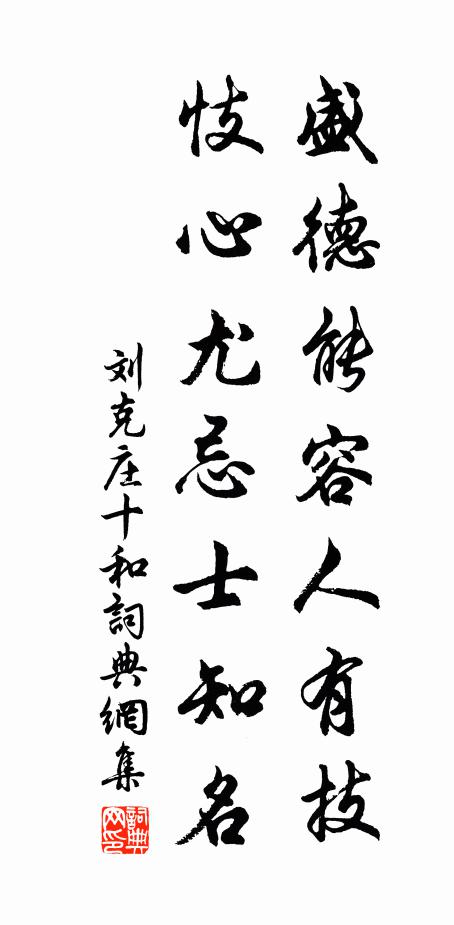 盛德能容人有技
忮心尤忌士知名
刘克庄十和詞典網集
詞典网印